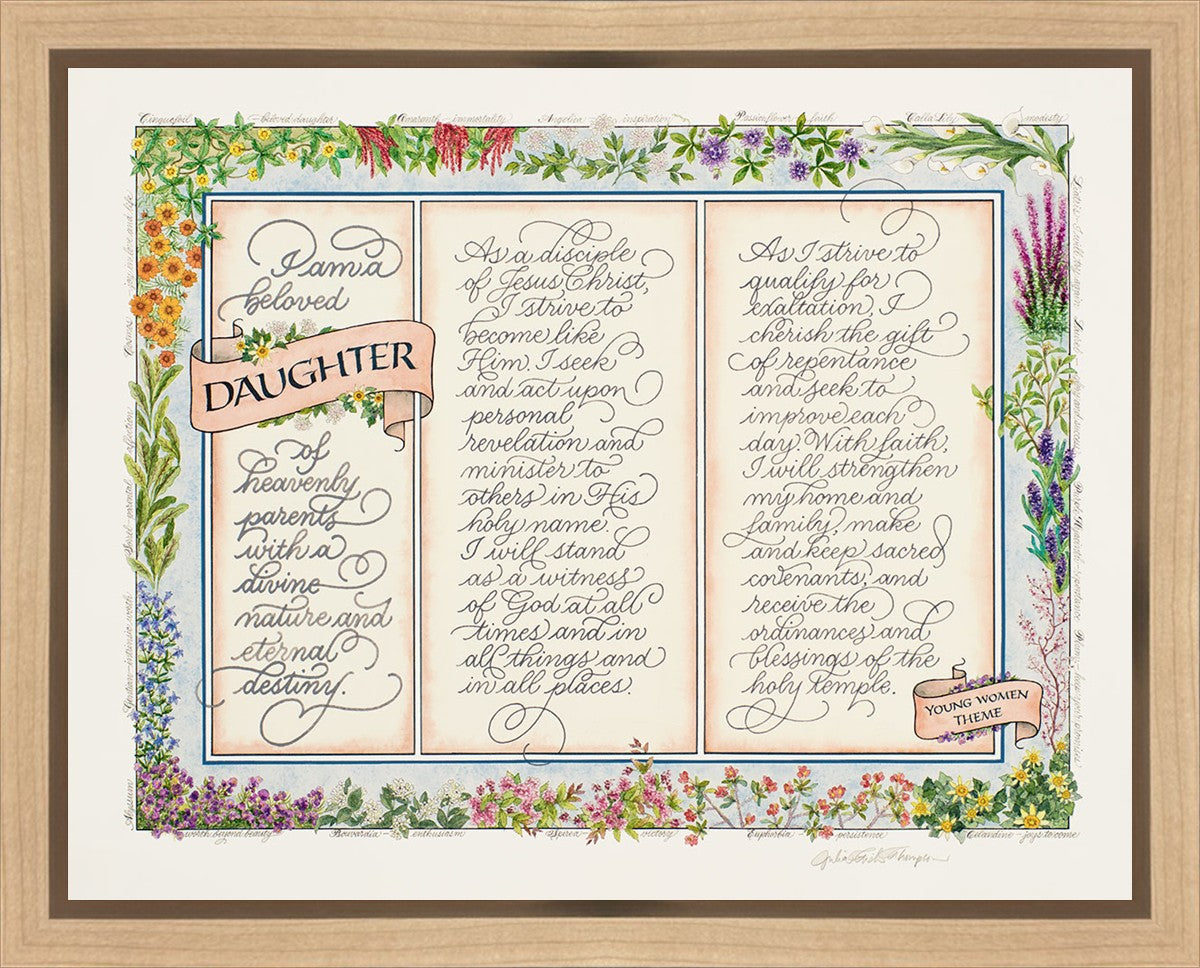 Cinquefoil — beloved daughter
Amaranth — immortality
Angelica — inspiration
Passionflower — faith
Calla Lily — modesty
I am a
beloved
DAUGHTER
of
heavenly
parents
with a
divine
nature and
eternal
destiny.
As a disciple
of Jesus Christ,
I strive to
become like
Him. I seek
and act upon
personal
revelation and
minister to
others in His
holy name.
I will stand
as a witness
of God at all
times and in
all things and
in all places.
As I strive to
qualify for
exaltation, I
cherish the gift
of repentance
and seek to
improve each
day. With faith,
I will strengthen
my home and
family, make
and keep sacred
covenants, and
receive the
ordinances and
blessings of the
holy temple.
YOUNG WOMEN
THEME
Sorrel — parental affection
Gentian — intrinsic worth
Alyssum — worth beyond beauty
Bouvardia — enthusiasm
Spirea — victory
Euphorbia — persistence
Celandine — joys to come